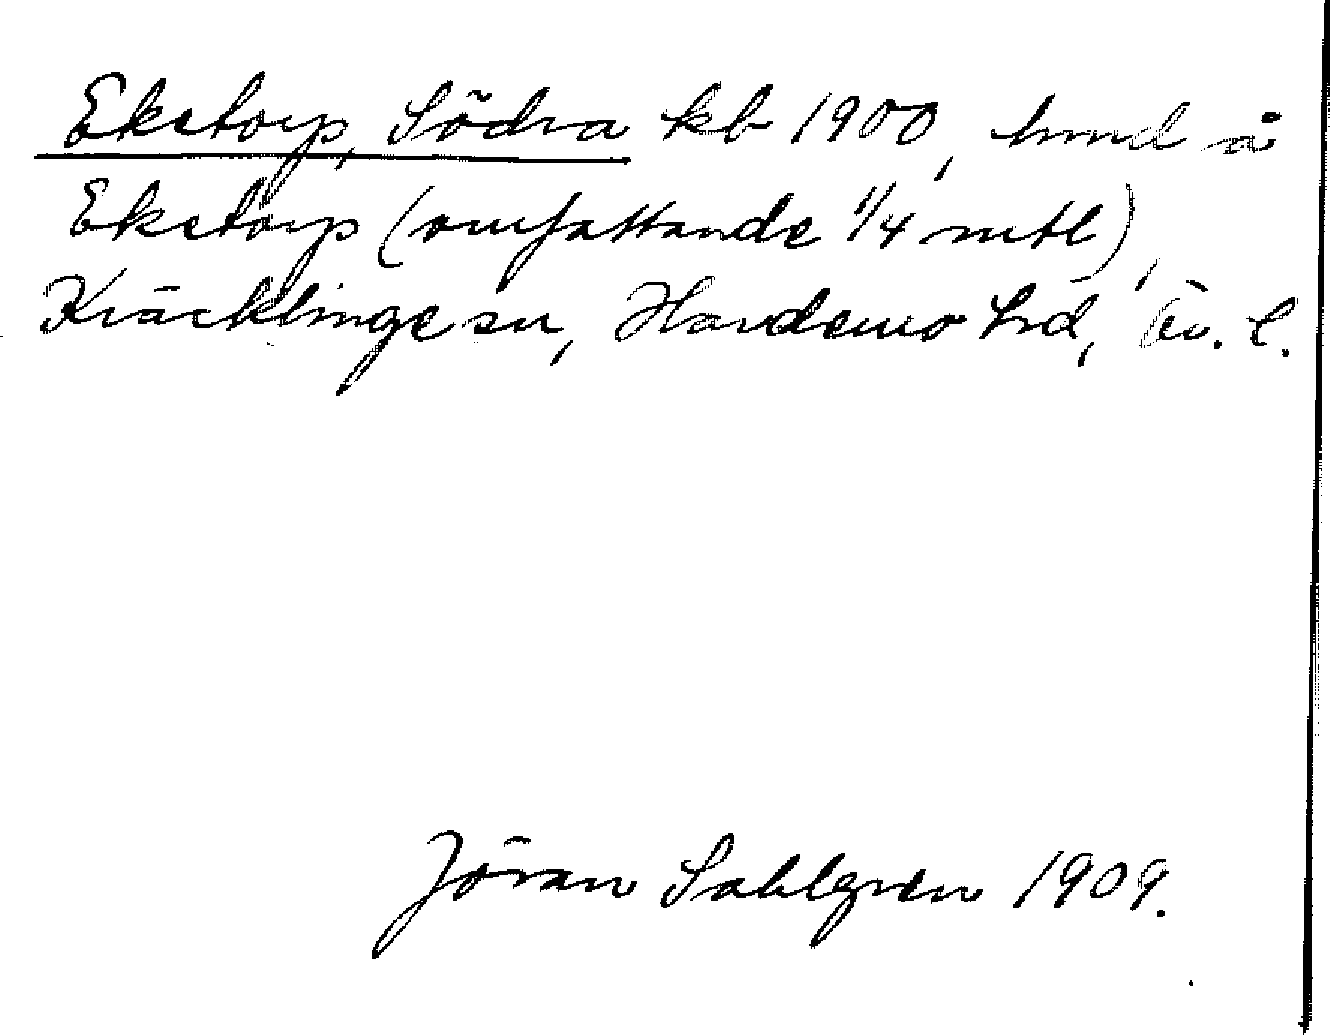 Ekstorp, Södra kb 1900, hmd å
Ekstorp (omfattande 1/4 mtl),
Kräcklinge sn, Hardemo hd, Ör. l.
Jöran Sahlgren 1909.